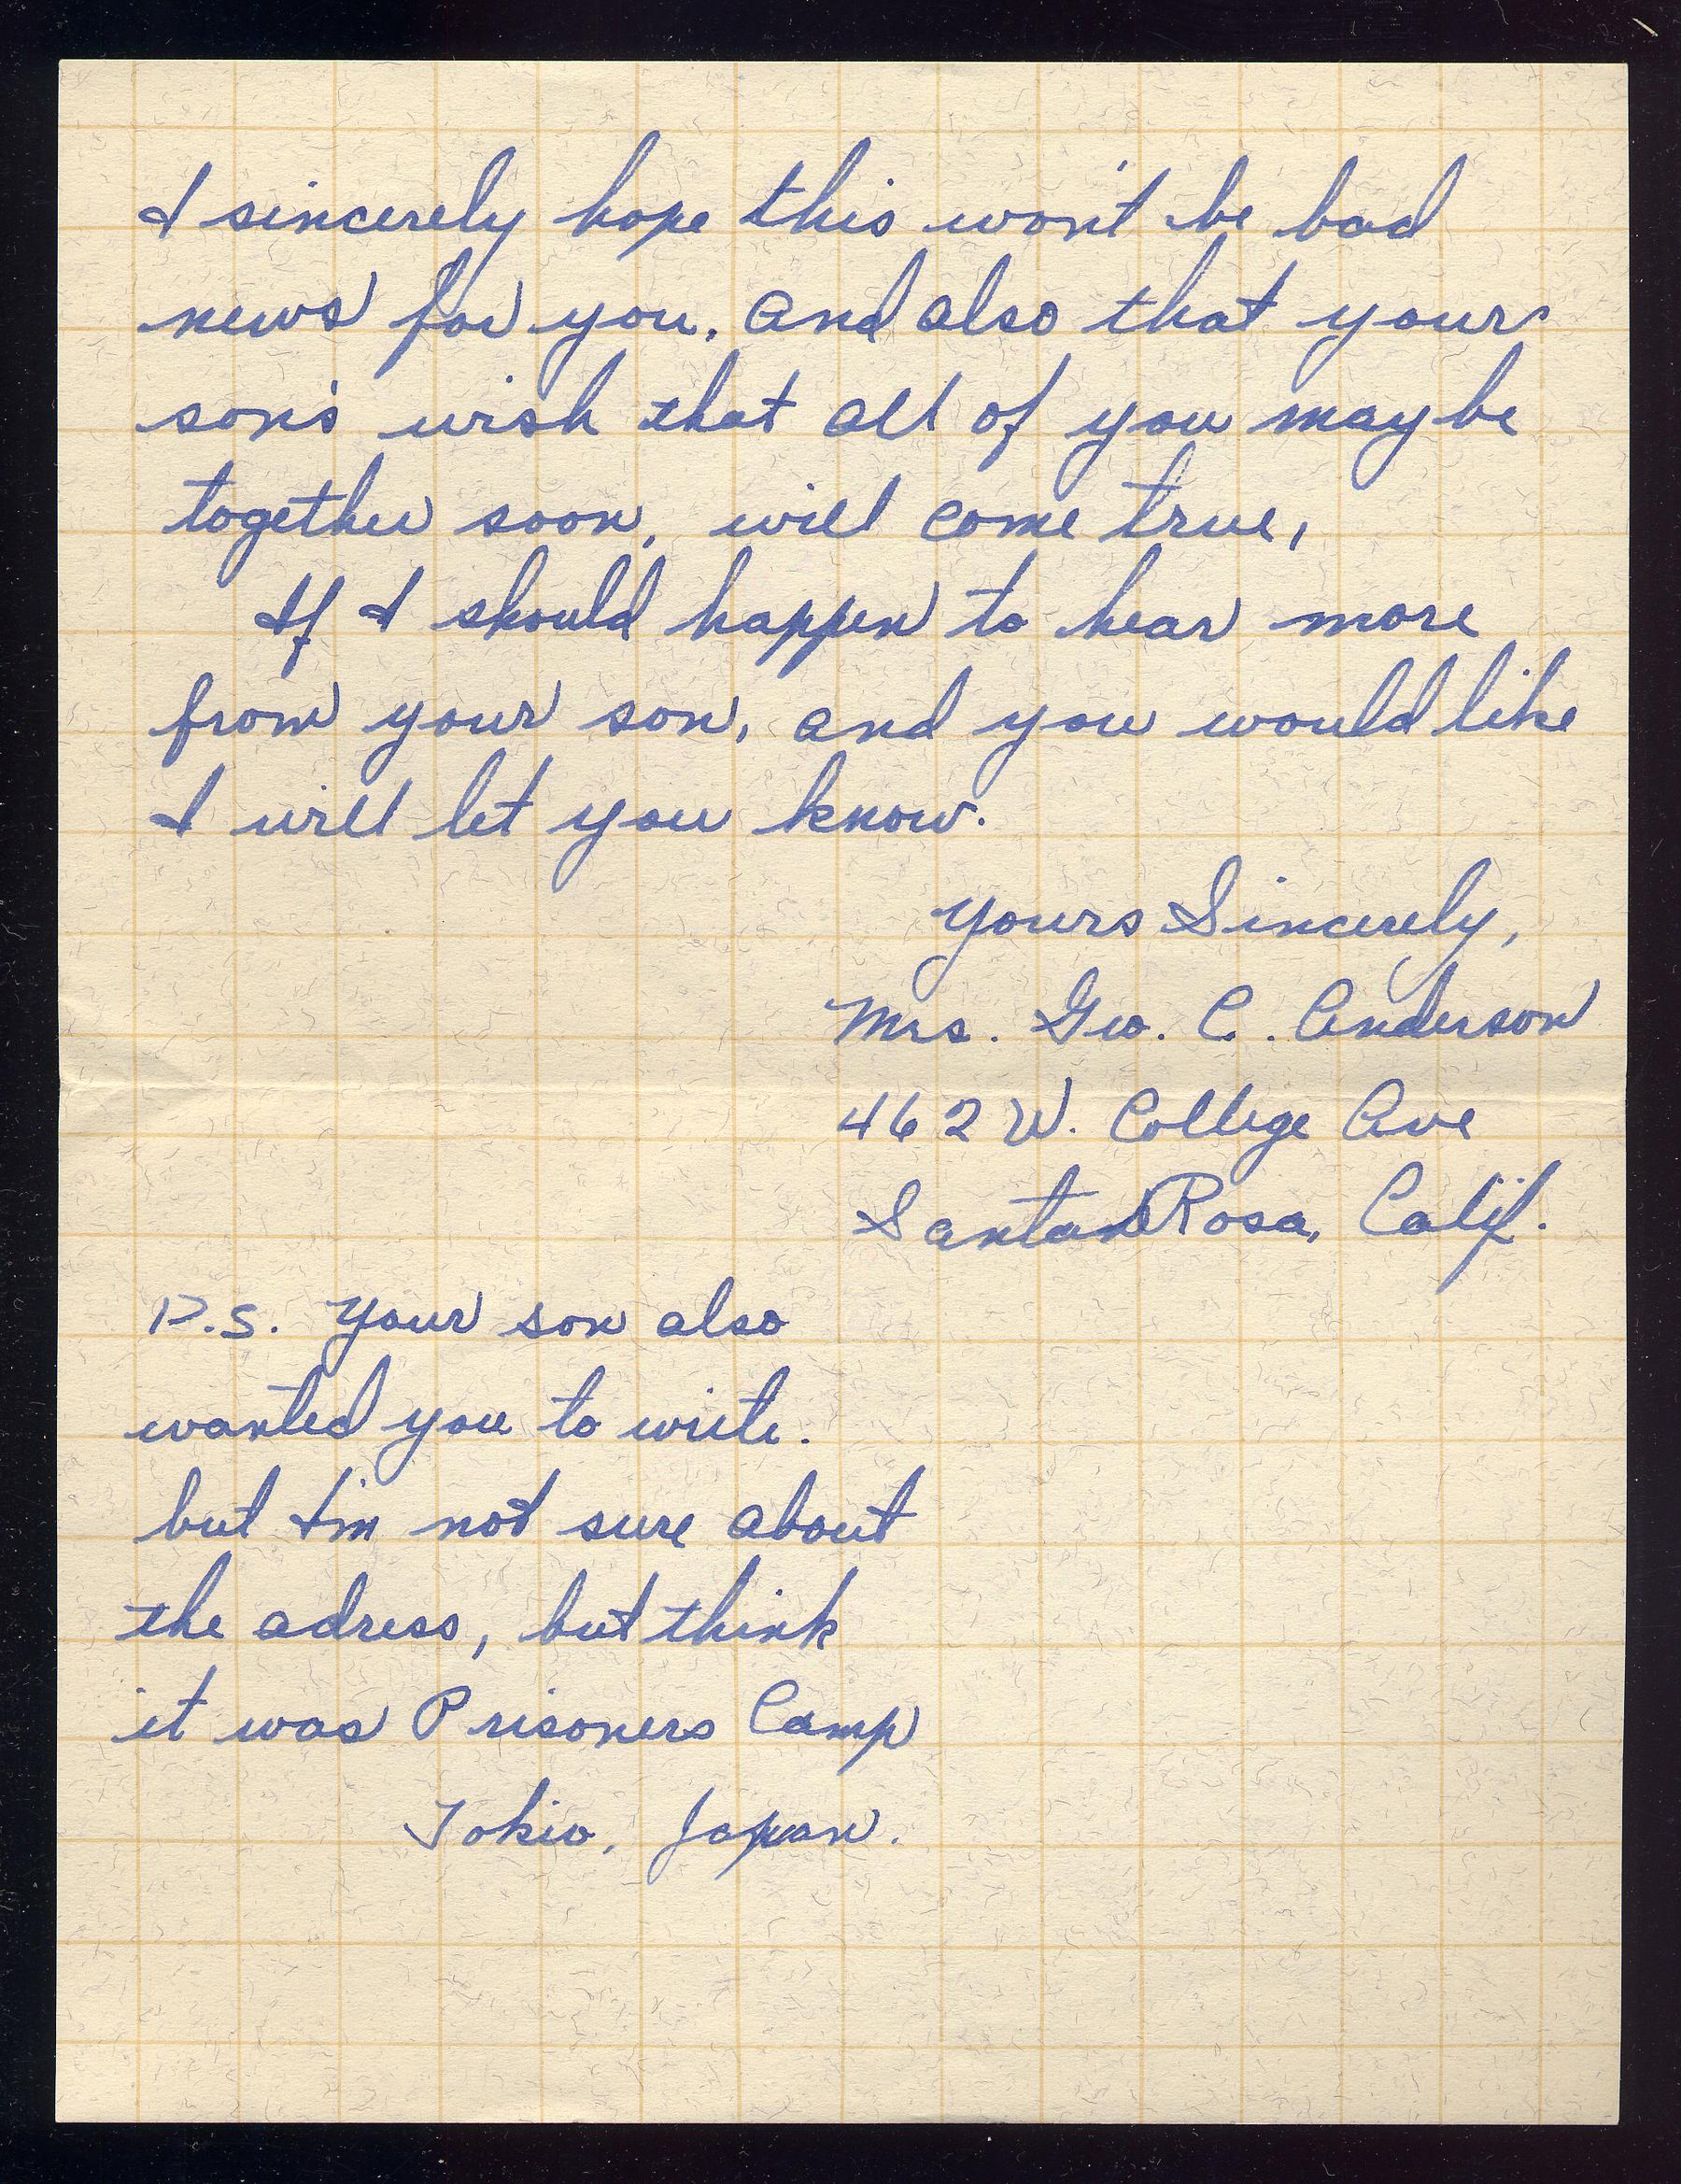 I sincerely hope this won't be bad
news for you. and also that your
son's wish that all of you may be
together soon, will come true,
If I should happen to hear more
from your son, and you would like
I will let you know.
Yours Sincerely,
Mrs. Geo. C. Anderson
462 W. College Ave
Santa Rosa, Calif.
P.S. Your son also
wanted you to write.
but I'm not sure about
the adress, but think
it was Prisoners Camp
Tokio, Japan.